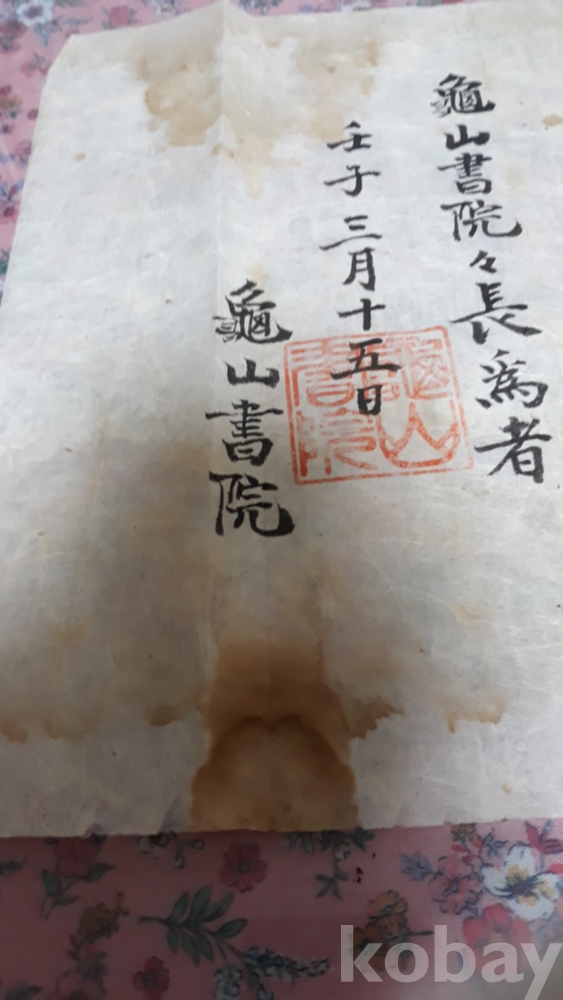 龜山書院々長爲者
壬子三月十五日
龜山書院
龜山書院
kobay